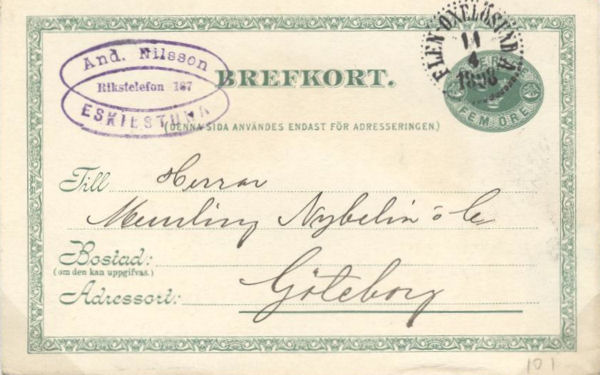 And. Nilsson
Rikstelefon 187
ESKILSTUNA
FLEN-OXELÖSUND
14
4
1898
BREFKORT.
FEM ÖRE
(DENNA SIDA ANVÄNDES ENDAST FÖR ADRESSERINGEN.)
Till Herrar
Nybelin & Co
Bostad:
(om den kan uppgifvas.)
Adressort: Göteborg
101